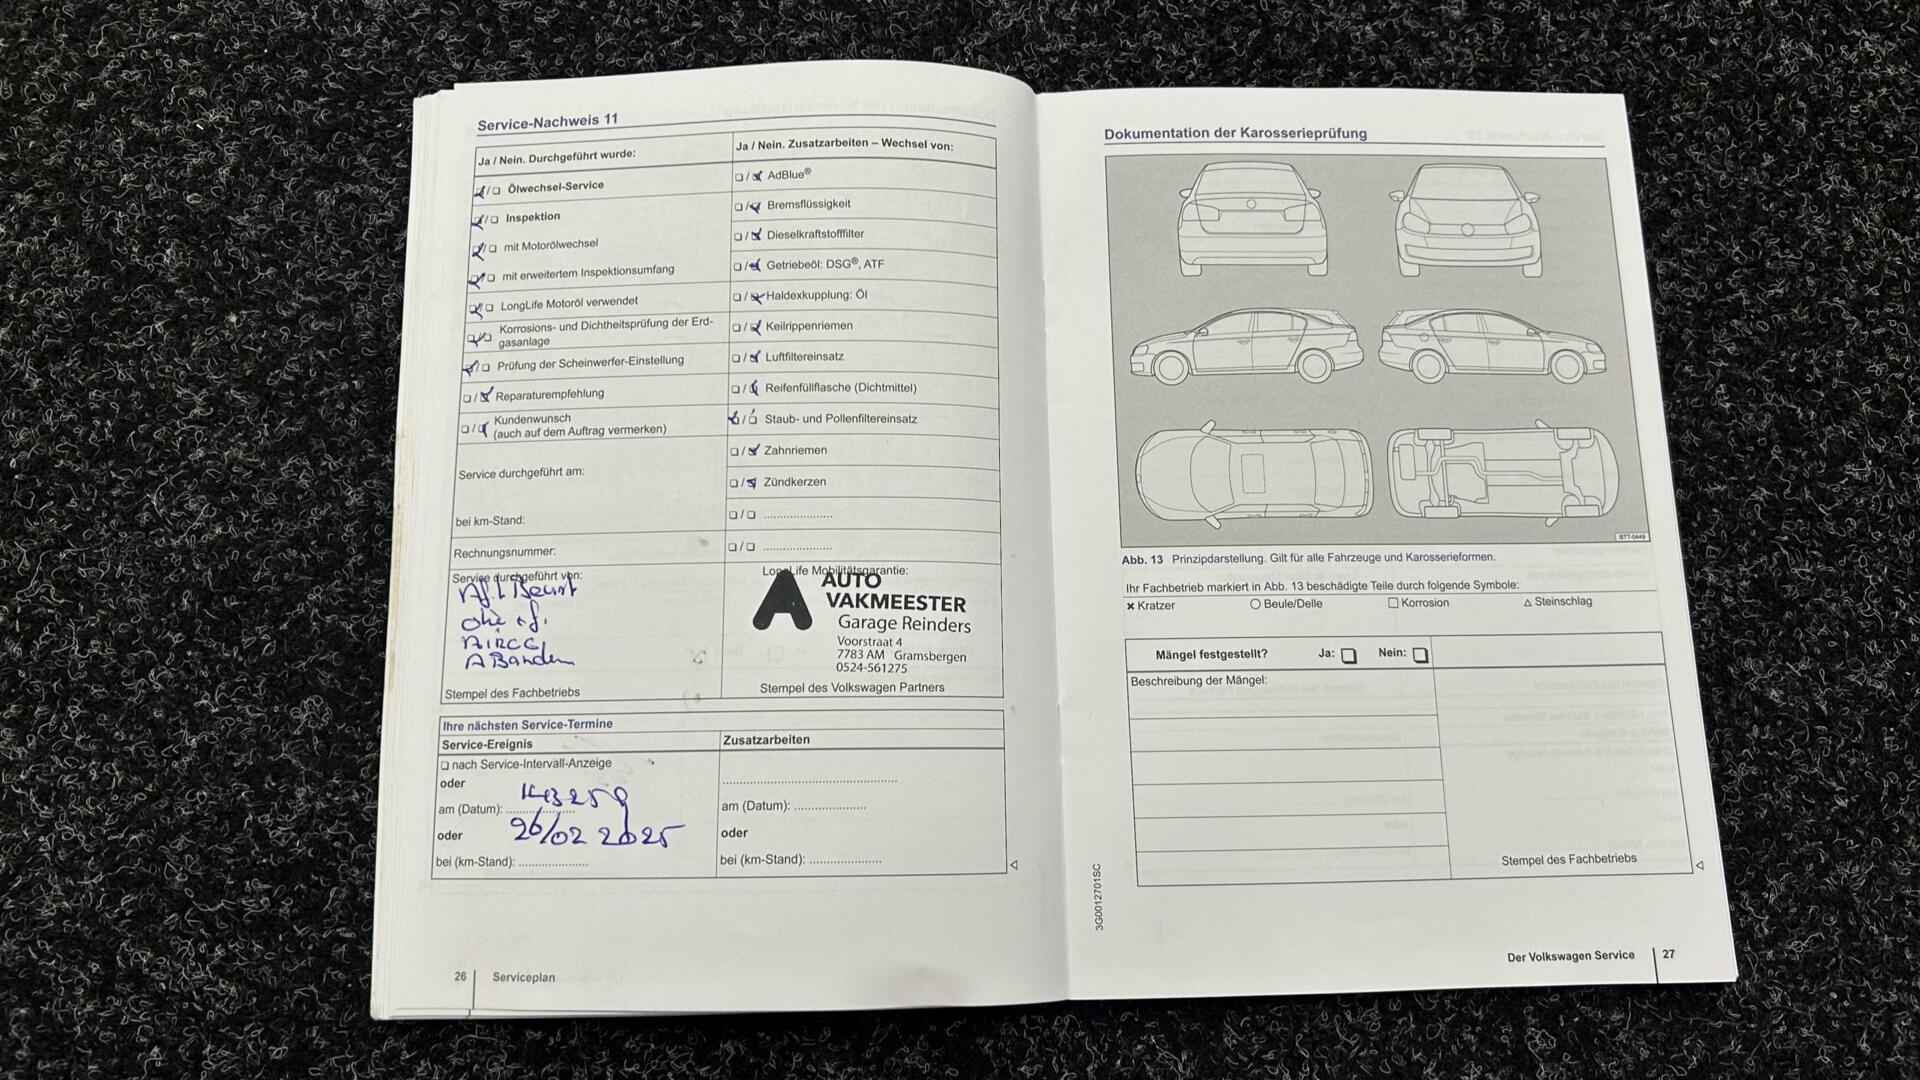 Service-Nachweis 11
Ja / Nein. Durchgeführt wurde:
❏/❏ Ölwechsel-Service
❏/❏ Inspektion
❏/❏ mit Motorölwechsel
❏/❏ mit erweitertem Inspektionsumfang
❏/❏ LongLife Motoröl verwendet
❏/❏ Korrosions- und Dichtheitsprüfung der Erd-
gasanlage
❏/❏ Prüfung der Scheinwerfer-Einstellung
❏/❏ Reparaturempfehlung
❏/❏ Kundenwunsch
(auch auf dem Auftrag vermerken)
Service durchgeführt am:
bei km-Stand:
Rechnungsnummer:
Service durchgeführt von:
olie + f.
AIRCO
Stempel des Fachbetriebs
Ja / Nein. Zusatzarbeiten – Wechsel von:
❏/❏ AdBlue®
❏/❏ Bremsflüssigkeit
❏/❏ Dieselkraftstofffilter
❏/❏ Getriebeöl: DSG®, ATF
❏/❏ Haldexkupplung: Öl
❏/❏ Keilrippenriemen
❏/❏ Luftfiltereinsatz
❏/❏ Reifenfüllflasche (Dichtmittel)
❏/❏ Staub- und Pollenfiltereinsatz
❏/❏ Zahnriemen
❏/❏ Zündkerzen
❏/❏ ....................
❏/❏ ....................
LongLife Mobilitätsgarantie:
AUTO
VAKMEESTER
Garage Reinders
Voorstraat 4
7783 AM Gramsbergen
0524-561275
Stempel des Volkswagen Partners
Ihre nächsten Service-Termine
Service-Ereignis
❏ nach Service-Intervall-Anzeige
oder
am (Datum): ....................
oder
26/02 2025
bei (km-Stand): ....................
Zusatzarbeiten
..................................................
am (Datum): ....................
oder
bei (km-Stand): ....................
26 Serviceplan
Dokumentation der Karosserieprüfung
B7T-0449
Abb. 13 Prinzipdarstellung. Gilt für alle Fahrzeuge und Karosserieformen.
Ihr Fachbetrieb markiert in Abb. 13 beschädigte Teile durch folgende Symbole:
✖ Kratzer ○ Beule/Delle □ Korrosion △ Steinschlag
Mängel festgestellt? Ja: ❏ Nein: ❏
Beschreibung der Mängel:
Stempel des Fachbetriebs
3G0012701SC
Der Volkswagen Service 27